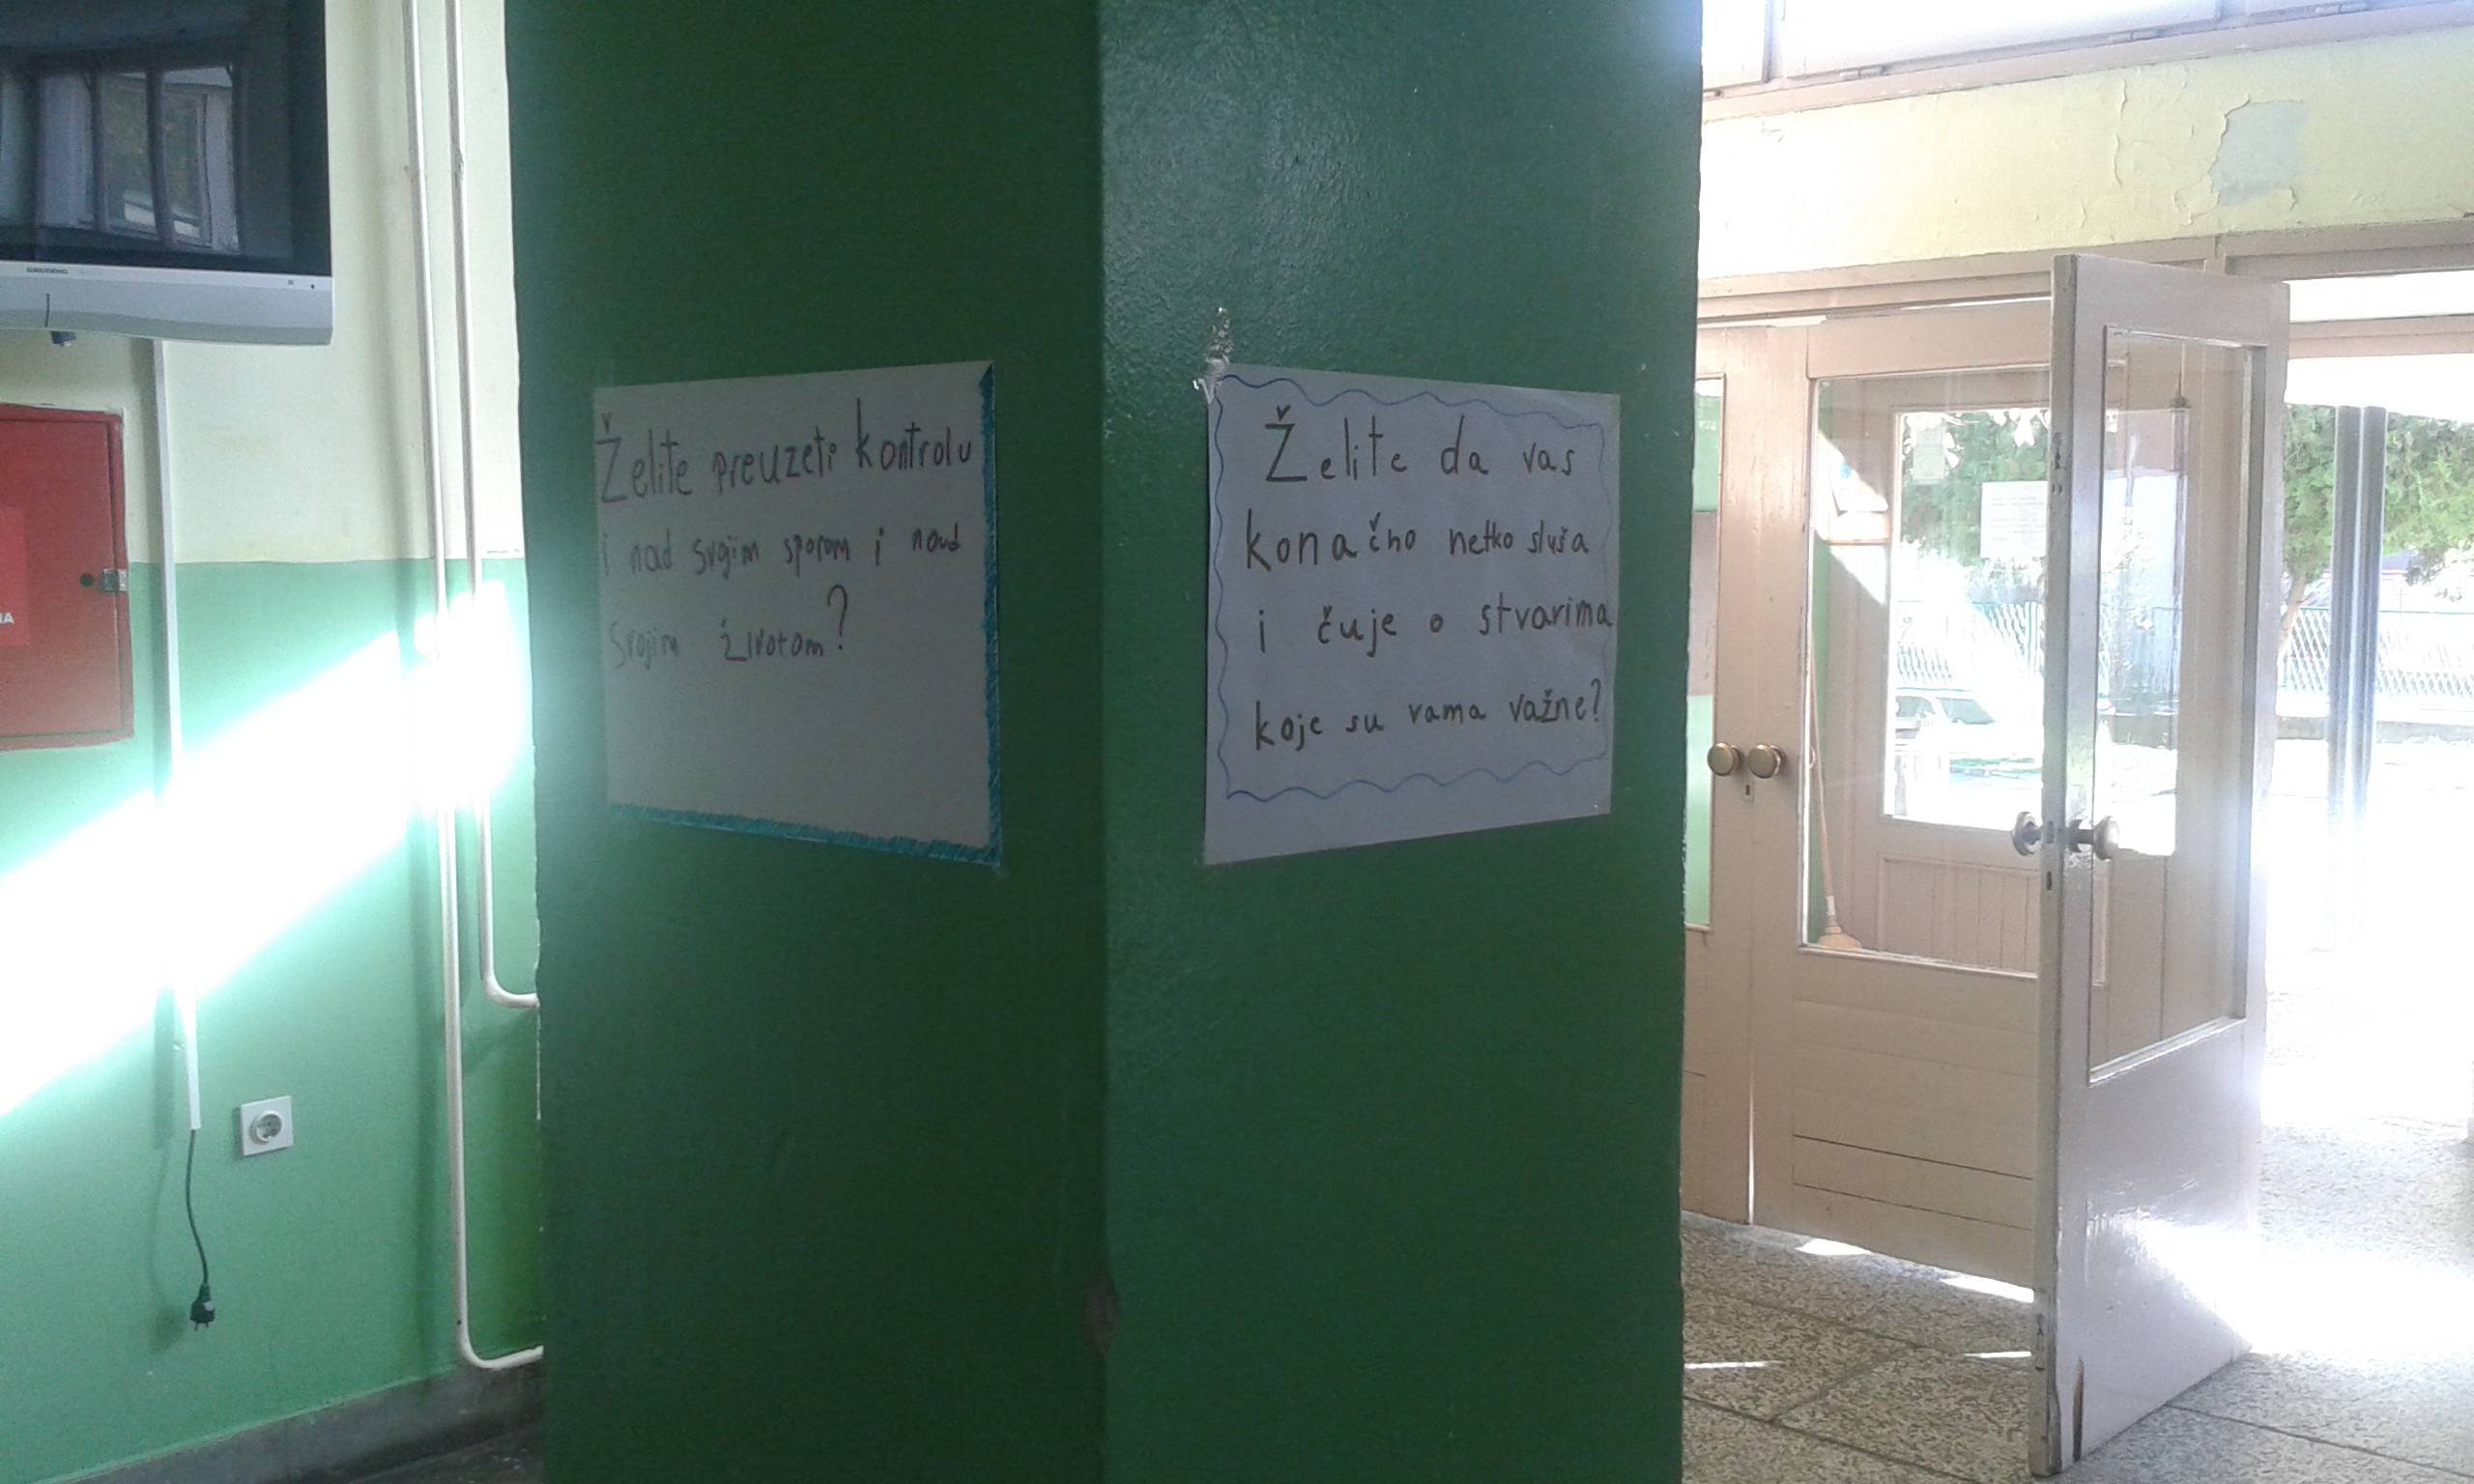 GRUNDIG
Želite preuzeti kontrolu
i nad svojim sporom i nad
svojim životom?
Želite da vas
konačno netko sluša
i čuje o stvarima
koje su vama važne?